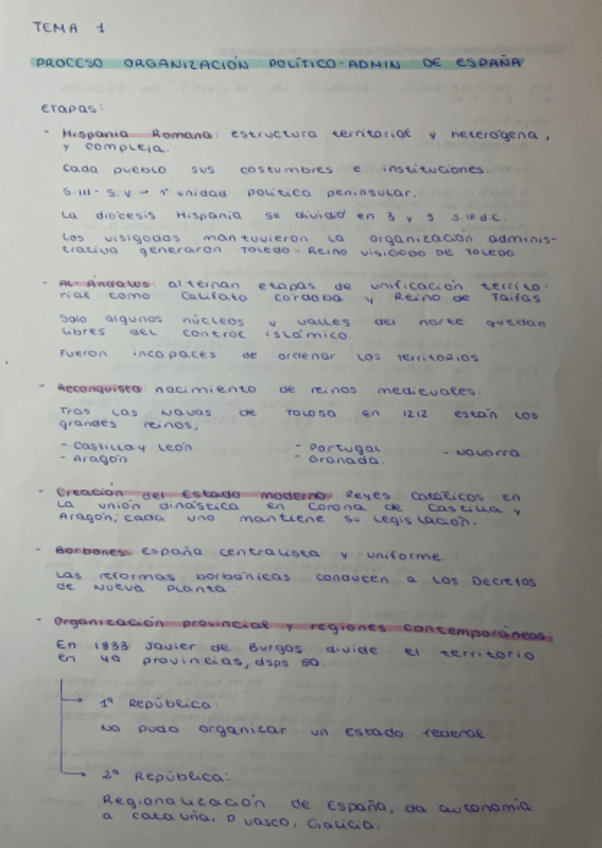 TEMA 1
PROCESO ORGANIZACIÓN POLÍTICO-ADMIN DE ESPAÑA
etapas:
- Hispania Romana: estructura territorial y heterógena,
y compleja.
Cada pueblo sus costumbres e instituciones.
S.III - S.V → 1ª unidad política peninsular.
La diócesis Hispania se dividió en 3 y 5 S.III d.C.
Los visigodos mantuvieron la organización adminis-
trativa generaron Toledo - Reino visigodo de Toledo
- Al Ándalus: alternan etapas de unificación territo-
rial como Califato Córdoba y Reino de Taifas.
Solo algunos núcleos y valles del norte quedan
libres del control islámico.
Fueron incapaces de ordenar los territorios
- Reconquista: nacimiento de reinos medievales.
Tras las Navas de Tolosa en 1212 están los
grandes reinos,
- Castilla y León - Portugal - Navarra
- Aragón - Granada.
- Creación del Estado moderno: Reyes católicos en
la unión dinástica en Corona de Castilla y
Aragón; cada uno mantiene su legislación.
- Borbones: España centralista y uniforme
Las reformas borbónicas conducen a los Decretos
de Nueva Planta.
- Organización provincial y regiones contemporáneas:
En 1833 Javier de Burgos divide el territorio
en 49 provincias, dsps 50.
→ 1ª República:
No pudo organizar un Estado federal
→ 2ª República:
Regionalización de España, da autonomía
a Cataluña, P. Vasco, Galicia.